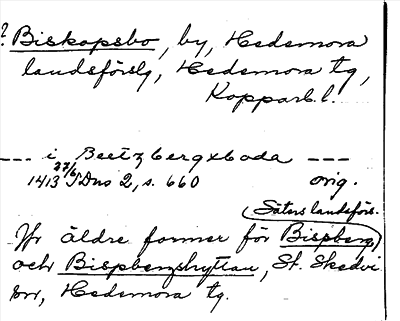 ? Biskopsbo, by, Hedemora
landsförsg, Hedemora tg,
Kopparb. l.
--- i Beetzbergxboda ---
1413 27/6 SDns 2, s. 660 orig.
(Säters landsförs.
Jfr äldre former för Bispberg)
och Bispbergshyttan, St. Skedvi
sn, Hedemora tg.